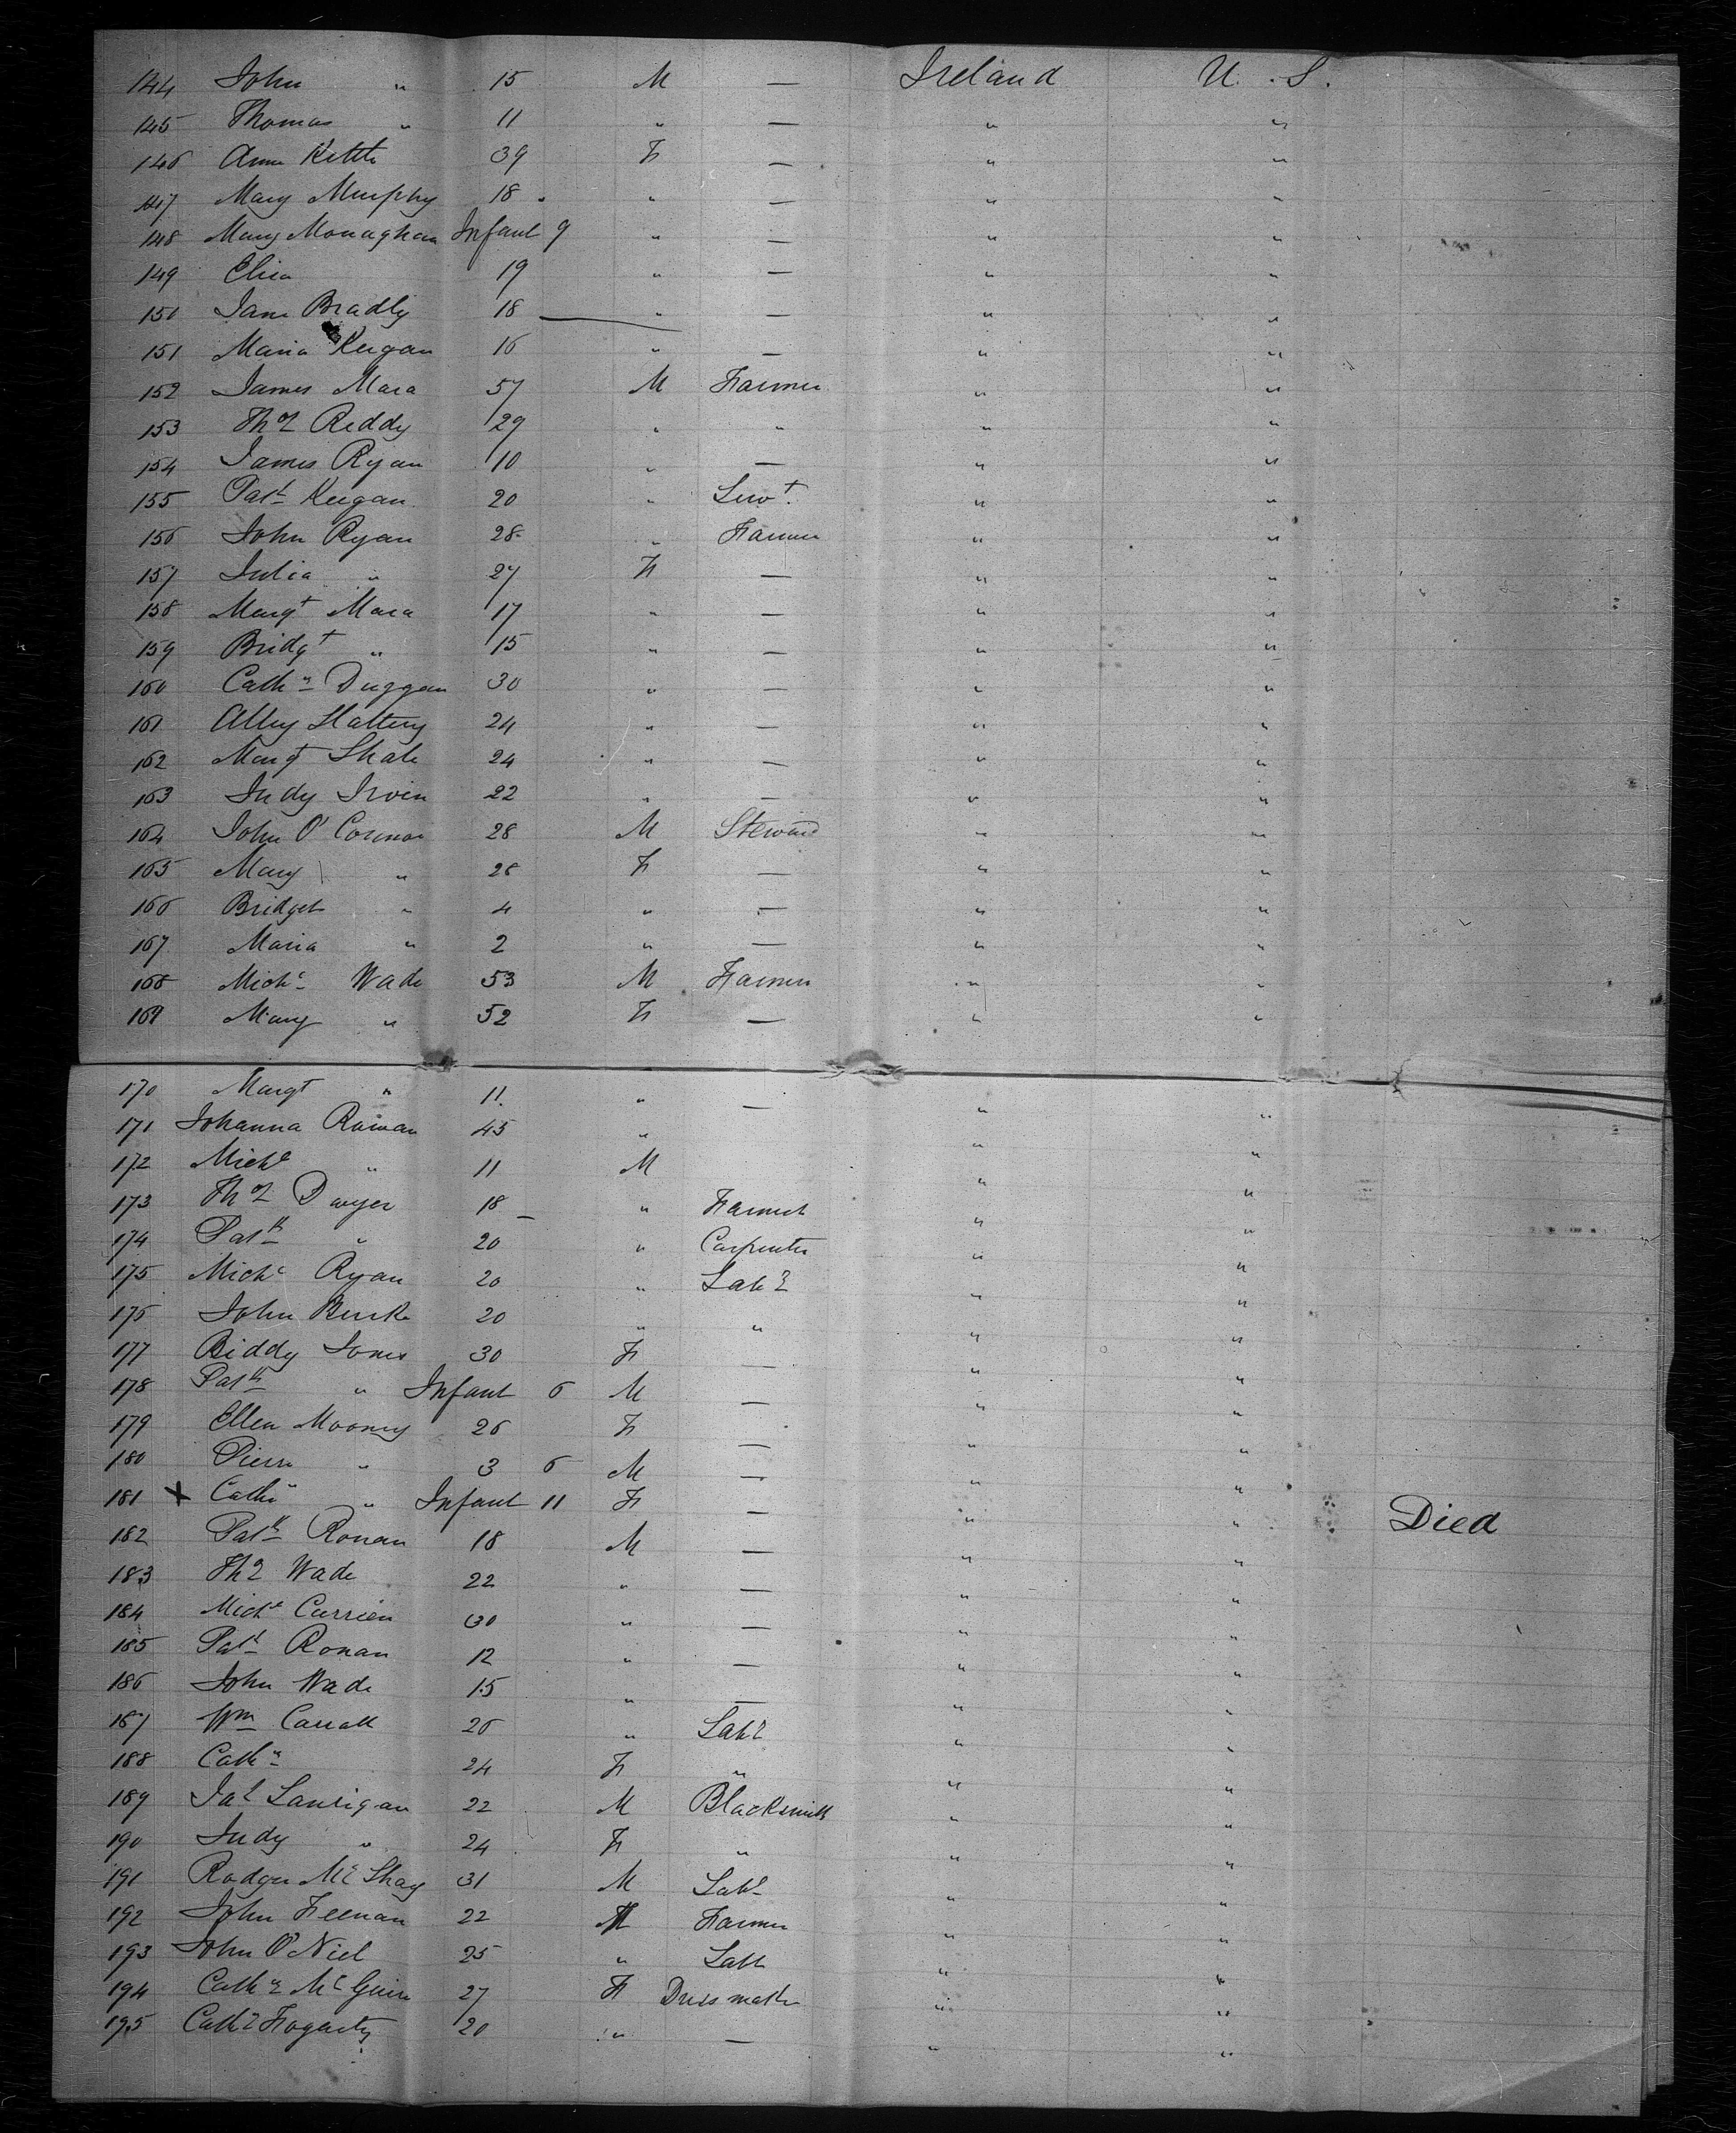 144 John " 15 M — Ireland U.S.
145 Thomas " 11 " — " "
146 Ann Kettle 39 F — " "
147 Mary Murphy 18 " — " "
148 Mary Monaghan Infant 9 " — " "
149 Eliza 19 " — " "
150 Jane Bradly 18 " — " "
151 Maria Keegan 16 " — " "
152 James Mara 57 M Farmer " "
153 Thos Reddy 29 " " " "
154 James Ryan 10 " — " "
155 Patk Keegan 20 " Servt. " "
156 John Ryan 28 " Farmer " "
157 Julia " 27 F — " "
158 Margt Mara 17 " — " "
159 Bridgt " 15 " — " "
160 Cathn Duggan 30 " — " "
161 Abby Slattery 24 " — " "
162 Margt 24 " — " "
163 Judy Irvin 22 " — " "
164 John O'Connor 28 M Steward " "
165 Mary " 28 F — " "
166 Bridget " 4 " — " "
167 Maria " 2 " — " "
168 Michl Wade 53 M Farmer " "
169 Mary " 52 F — " "
170 Margt " 11 " — " "
171 Johanna 45 " " "
172 Michl " 11 M " "
173 Thos Dwyer 18 " Farmer " "
174 Patk " 20 " Carpenter " "
175 Michl Ryan 20 " Labr " "
176 John Burke 20 " " " "
177 Biddy Jones 30 F — " "
178 Patk " Infant 6 M — " "
179 Ellen Mooney 26 F — " "
180 Pierre " 3 6 M — " "
181 x Cathn " Infant 11 F — " " Died
182 Patk Ronan 18 M — " "
183 Thos Wade 22 " — " "
184 Michl 30 " — " "
185 Patk Ronan 12 " — " "
186 John Wade 15 " — " "
187 Wm Carroll 26 " Labr " "
188 Cathn 24 F " " "
189 Jas Lanrigan 22 M Blacksmith " "
190 Judy " 24 F " " "
191 Rodger McShay 31 M Labr " "
192 John Feenan 22 M Farmer " "
193 John O'Niel 25 " Labr " "
194 Cathn McGuire 27 F Dressmaker " "
195 Cathn Fogarty 20 " — " "